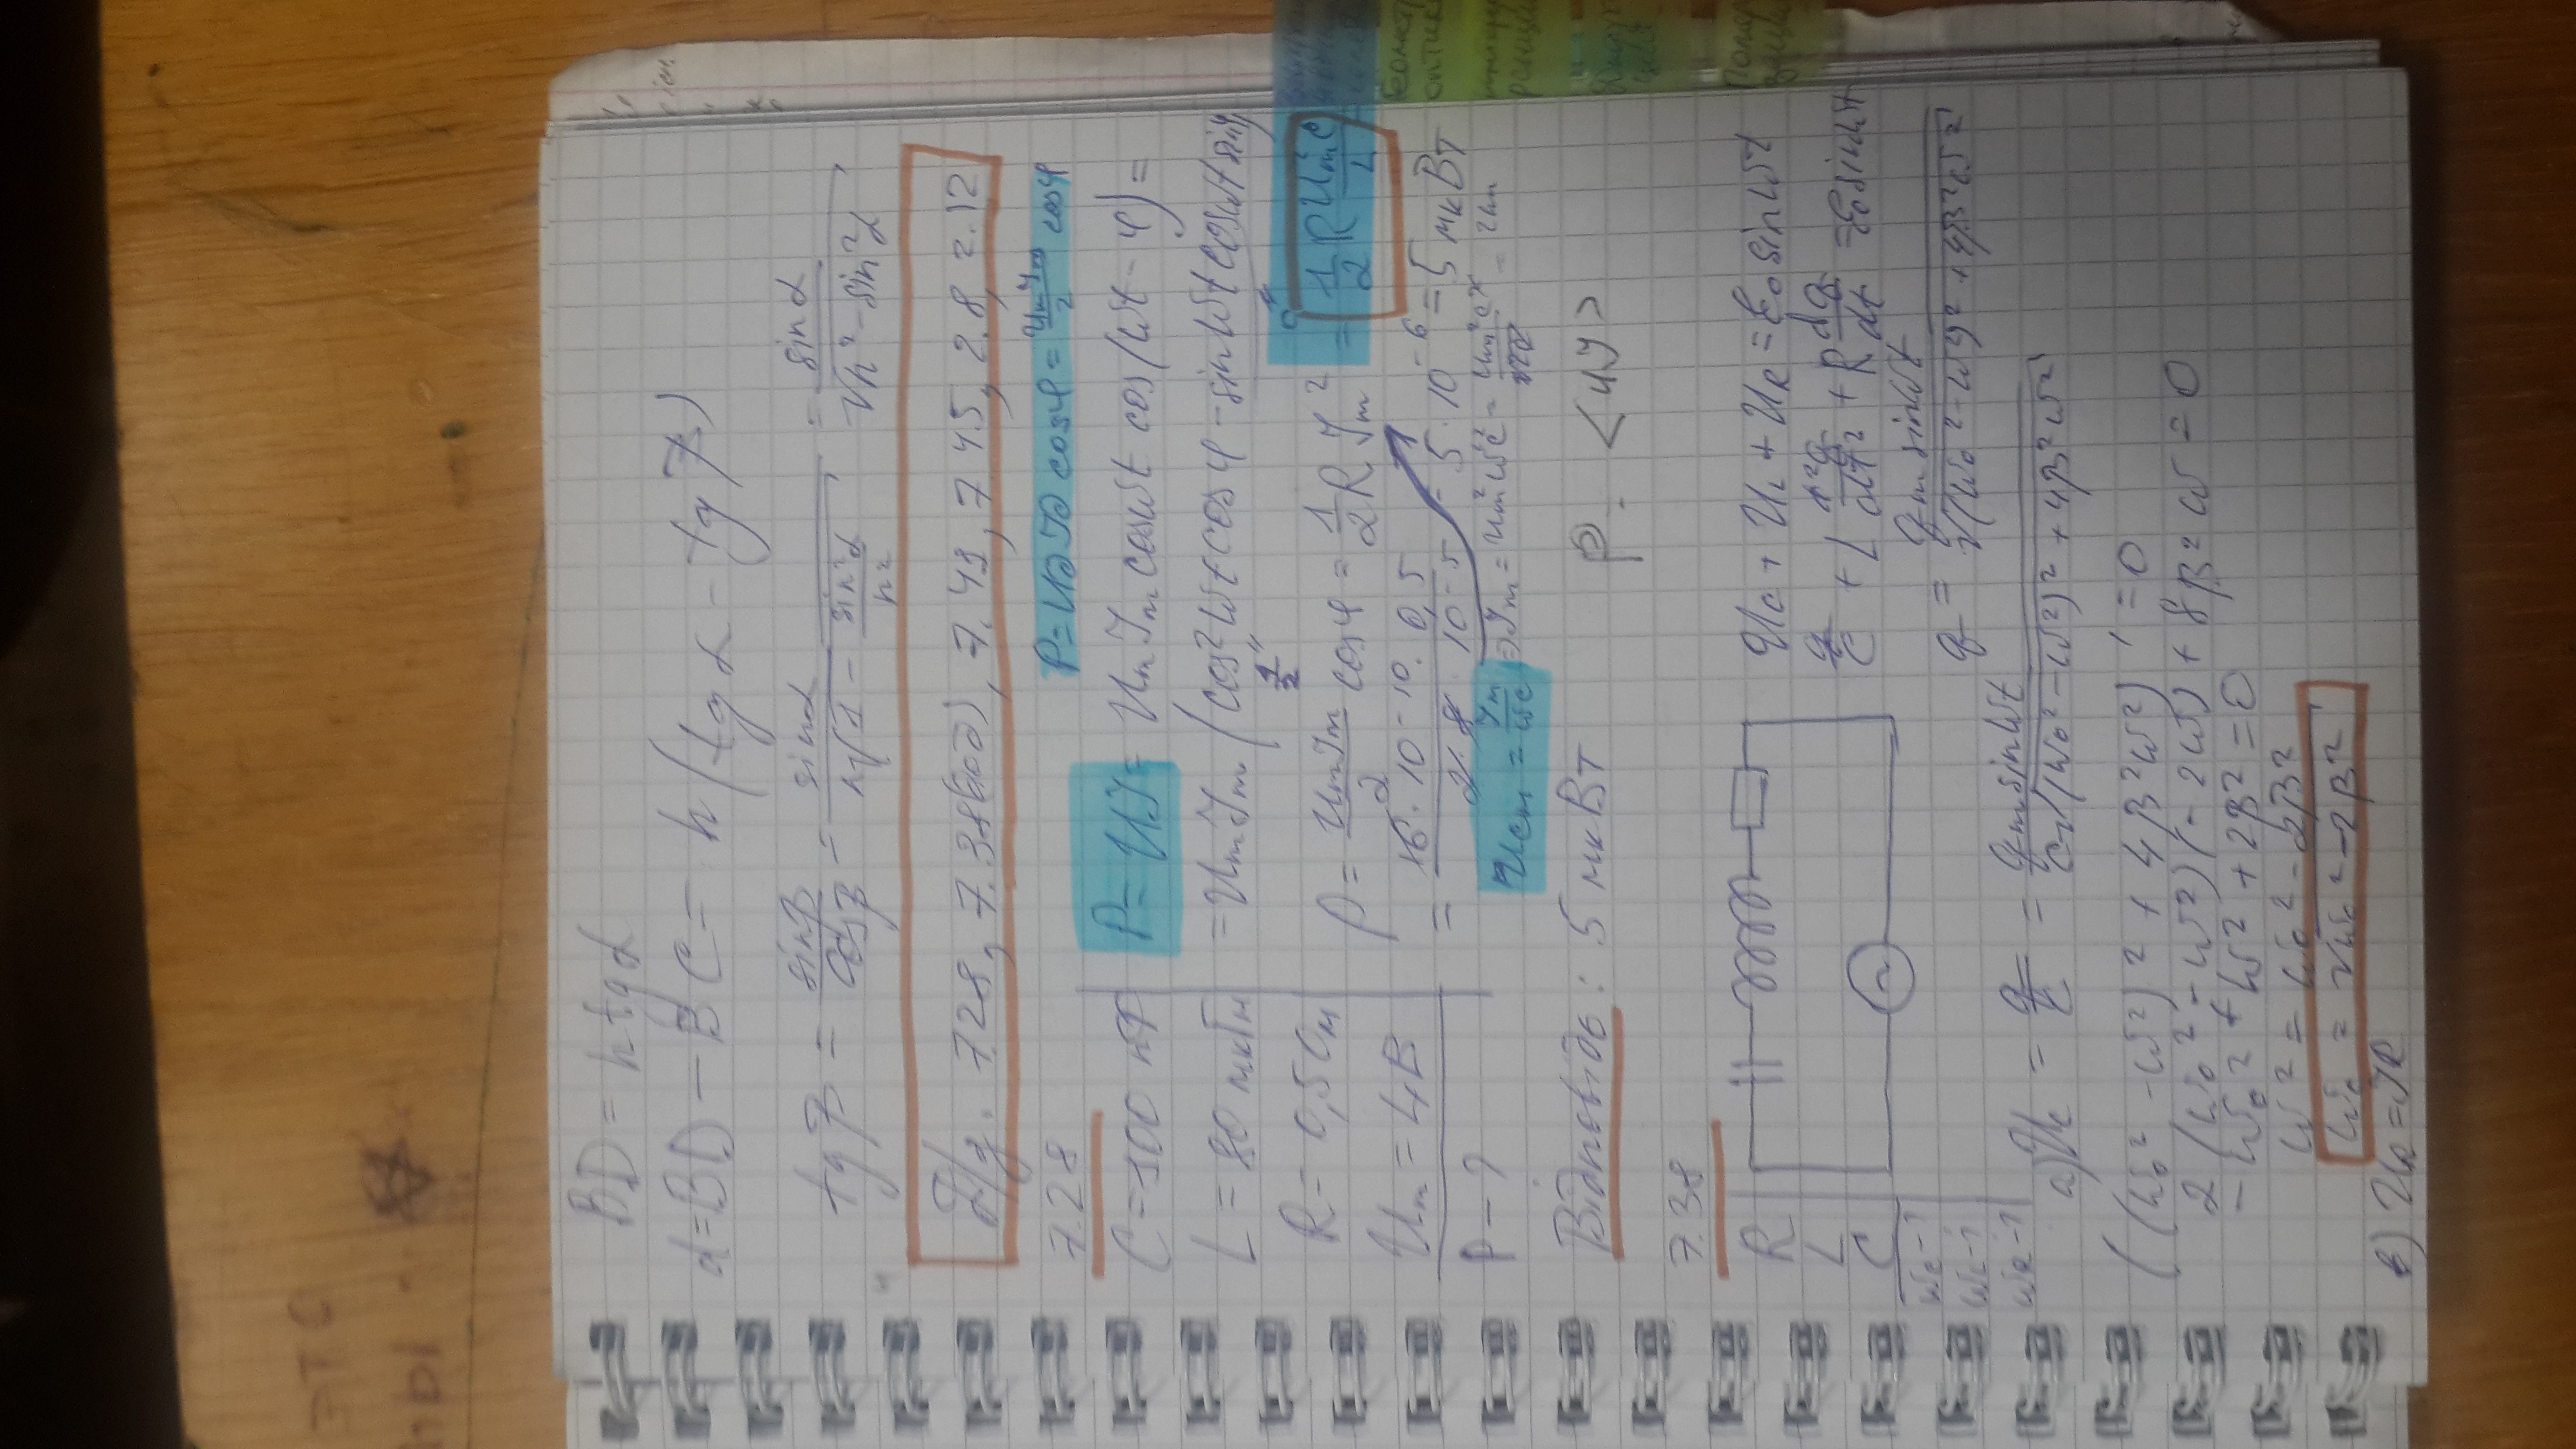 BD = h tg α
d = BD − BC = h (tg α − tg β)
tg β = sin β / cos β = sin α / (n √(1 − sin²α / n²)) = sin α / √(n² − sin²α)
Д/з. 7.28, 7.38(), 7.41, 7.45, 2.8, 2.12
7.28
P = UдIд cos φ = UmIm/2 cos φ
C = 100 пФ
P = UI = UmIm cos ωt cos (ωt − φ) =
L = 80 мкГн
= UmIm (cos² ωt cos φ − sin ωt cos ωt sin φ)
1/2
0
R = 0,5 Ом
P = UmIm/2 cos φ = 1/2 R Im² = 1/2 R Um²C/L
Um = 4 В
= 16 · 10⁻¹⁰ · 0,5 / 2 · 8 · 10⁻⁵ = 5 · 10⁻⁶ = 5 мкВт
P − ?
Ucm = Im/ωC ⇒ Im = Um²ω²C² =
Відповідь: 5 мкВт
P = <UI>
7.38
R
L
C
ωc − ?
ωL − ?
ωR − ?
Uc + UL + UR = ℰ₀ sin ωt
q/C + L d²q/dt² + R dq/dt = ℰ₀ sin ωt
q = qm sin ωt / √((ω₀² − ω²)² + 4β²ω²)
а) Uc = q/C = qm sin ωt / C√((ω₀² − ω²)² + 4β²ω²)
((ω₀² − ω²)² + 4β²ω²)' = 0
2 (ω₀² − ω²)(−2ω) + 8β²ω = 0
−ω₀² + ω² + 2β² = 0
ω² = ω₀² − 2β²
ωc = √(ω₀² − 2β²)
в) UR = IR